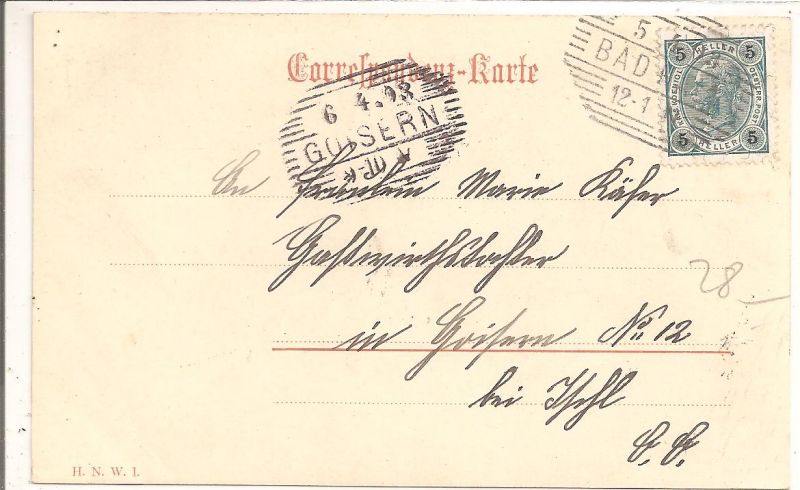 Correspondenz-Karte
5
BAD
12-1
5 HELLER 5
KAIS. KOENIGL. OESTERR. POST.
5 HELLER 5
6 4.03
GOISERN
An Fräulein Marie Käfer
Gastwirthstochter
28
in Goisern No 12
bei Ischl
O. Ö.
H. N. W. I.